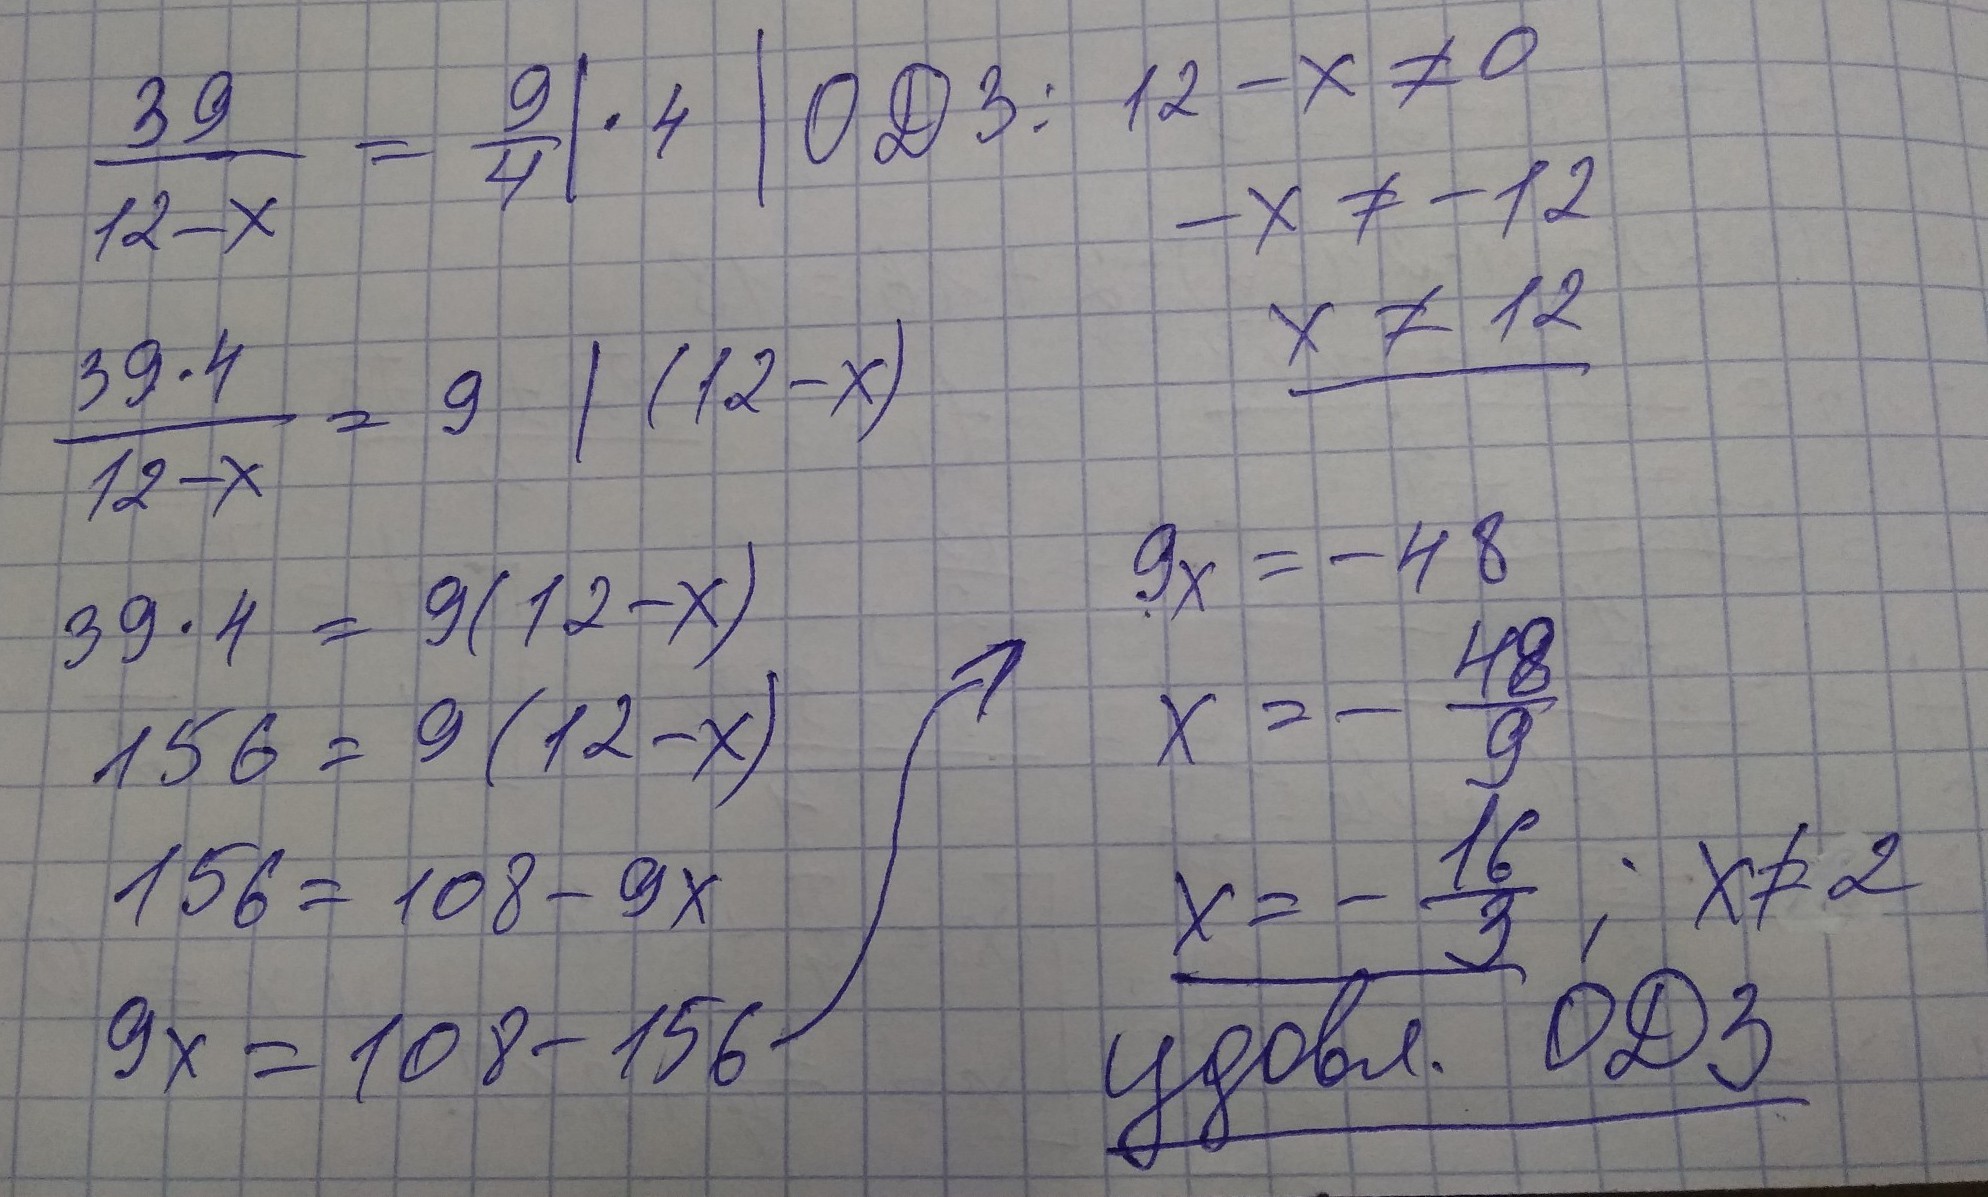 39/(12-x) = 9/4 | · 4 | ОДЗ: 12 - x ≠ 0
-x ≠ -12
x ≠ 12
39·4/(12-x) = 9 | (12-x)
39·4 = 9(12-x)
156 = 9(12-x)
156 = 108 - 9x
9x = 108 - 156
9x = -48
x = - 48/9
x = - 16/3 ; x ≠ 2
удовл. ОДЗ